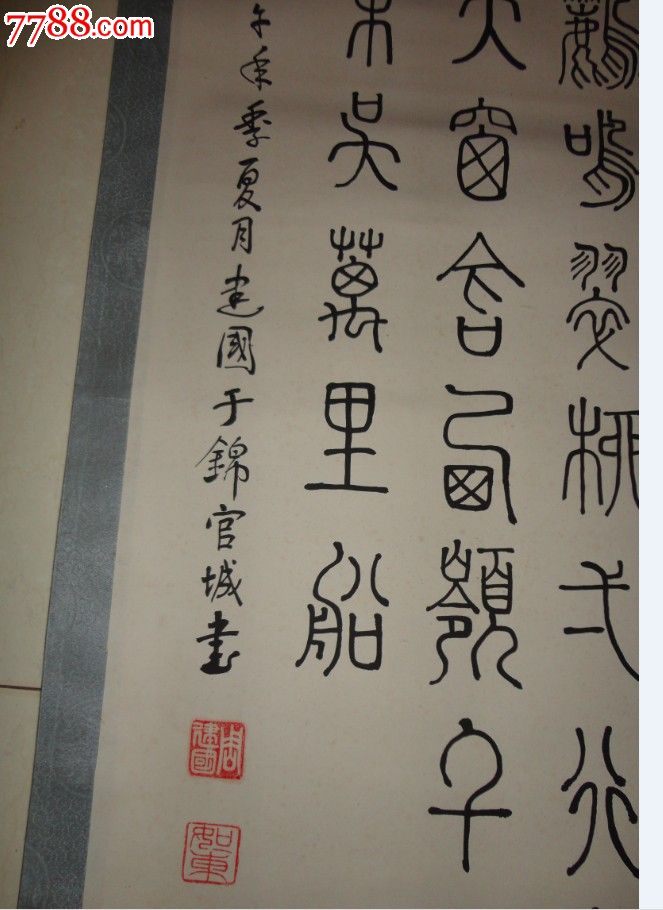 7788.com
鸝鳴翠柳弌行
天窗含西嶺千
東吳萬里船
午年季夏月建國于錦官城書
周建國
如東